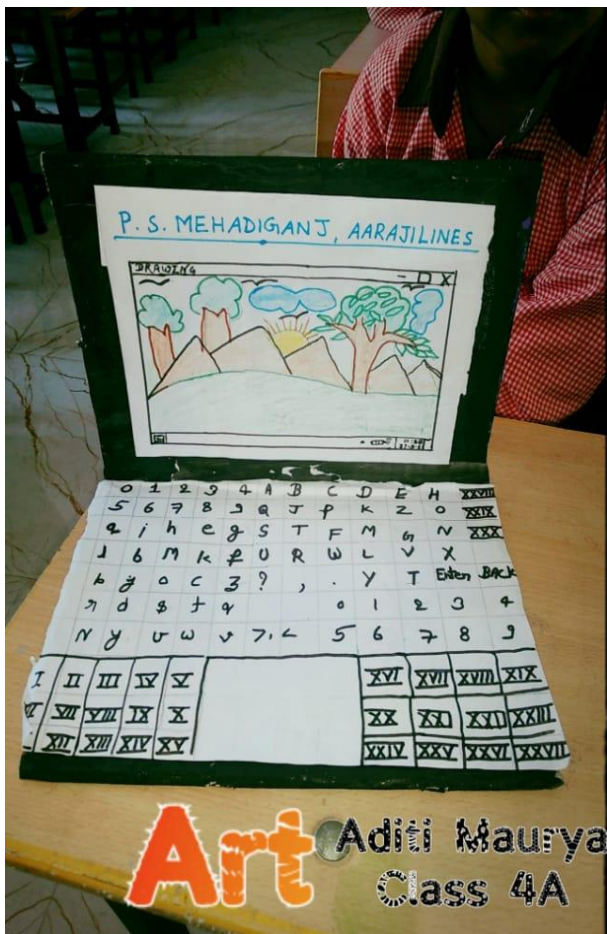 P. S. MEHADIGANJ, AARAJILINES
DRAWING - □ X
0 1 2 3 4 A B C D E H XXVIII
5 6 7 8 9 Q J P K Z O XXIX
a i h e g S T F M G N XXX
d b M k f U R W L V X
b y o c z ? , . Y T Enter BACK
n d $ t q 0 1 2 3 4
N y u w v >, < 5 6 7 8 9
I II III IV V XVI XVII XVIII XIX
VII VIII IX X XX XXI XXII XXIII
XII XIII XIV XV XXIV XXV XXVI XXVII
Art Aditi Maurya
Class 4A